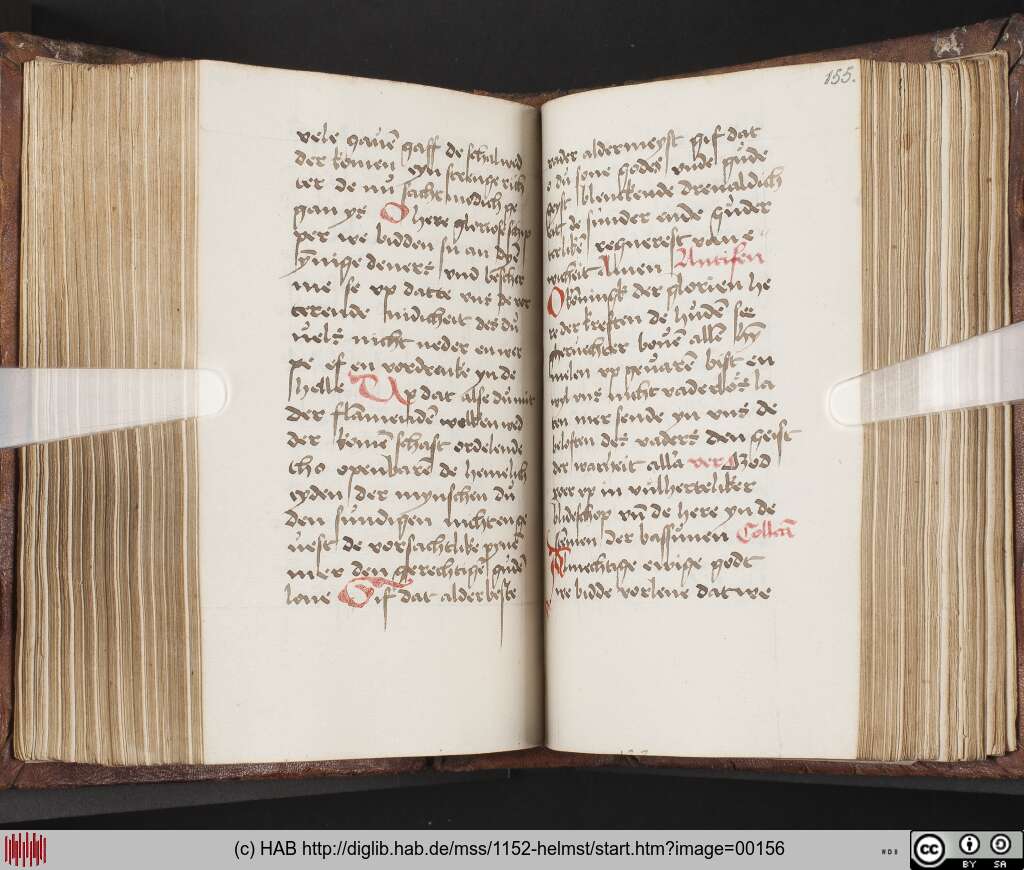 vele gauē gaff de schal wed
der komen eyn strenge rich
ter de nu sachtmodich ge
gan ys O here gloriose schip
per we bidden
ynige deners vnd bescher
me se vp datte vns de vor
terende nidicheit des du
uels nicht neder en wer
pe ef en vordrencke yn de
helle Up dat alse du mit
der flāmendē wolken wed
der komē schast ordelende
tho openbarē de hemelich
eyden der mynschen du
den sundigen nicht en ge
uest de vorsachtlike pyne
mer den gerechtigē gude
lone Gif dat alderbeste
155.
vader aldermeyst gif dat
o du sone godes vnde gude
geyst blenckende dreualdich
heit de sunder ende guder
terlikē regnerest van e
wicheit Amen Antifen
O konnigk der glorien he
re der kreften de huden
bouē allen hȳ
melen vp geuaren bist en
vns nicht vaderlos la
ten mer sende yn vns de
beloften des vaders den geist
der warheit alla vers God
voer vp in vullherteliker
blideschop vn̄ de here yn de
stemen der bassunen Collecta
Almechtige ewige godt
we bidde vorlene dat we
(c) HAB http://diglib.hab.de/mss/1152-helmst/start.htm?image=00156
WDB
cc
BY SA